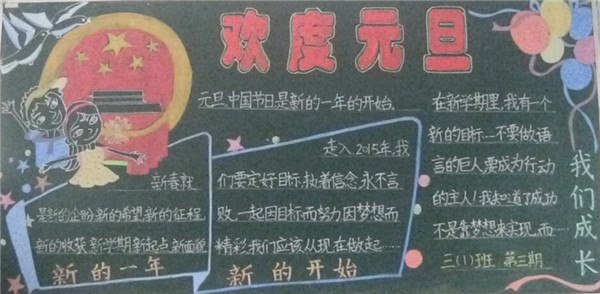 欢度元旦
元旦,中国节日是新的一年的开始.
走入2015年,我
们要定好目标,执着信念,永不言
败,一起因目标而努力,因梦想而
精彩,我们应该从现在做起……
新的开始
新春就
是新的企盼,新的希望,新的征程,
新的收获,新学期新起点新面貌
新的一年
在新学期里,我有一个
新的目标……不要做语
言的巨人要成为行动
的主人!我知道了成功
不是靠梦想来实现,而……
三(1)班 第三期
我们成长